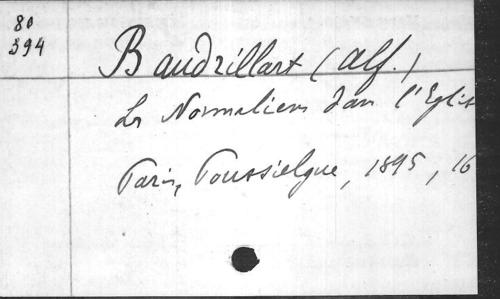 80
394
Baudrillart (Alf.)
Les Normaliens dans l'Eglis
Paris, Poussielgue, 1895, 16